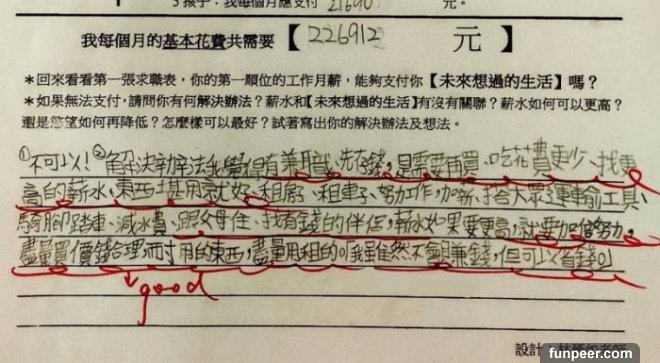 3孩子:我每個月應支付 21690 元。
我每個月的基本花費共需要【226912 元】
*回來看看第一張求職表,你的第一順位的工作月薪,能夠支付你【未來想過的生活】嗎?
*如果無法支付,請問你有何解決辦法?薪水和【未來想過的生活】有沒有關聯?薪水如何可以更高?
還是慾望如何再降低?怎麼樣可以最好?試著寫出你的解決辦法及想法。
①不可以!②解決辦法我覺得有兼職、先存錢,是需要再買、吃花費更少、找更
高的薪水、東西堪用就好、租房子、租車子、努力工作,加薪、搭大眾運輸工具、
騎腳踏車、減水費、跟父母住、找有錢的伴侶,薪水如果要更高,就要加倍努力,
盡量買價錢合理,而寸用的東西,盡量用租的。我雖然不會賺錢,但可以省錢。
good
設計:林 老師
funpeer.com